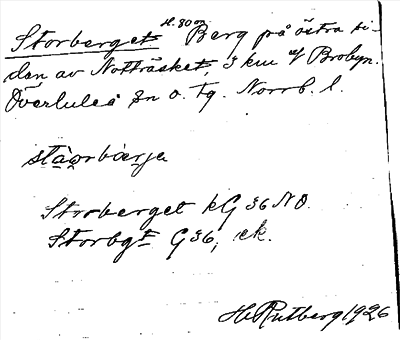 H. 80 m
Storberget Berg på östra si-
dan av Notträsket, 3 km of Brobyn.
Överluleå sn o. tg. Norrb. l.
stàorbærja
Storberget kG 36 NO.
Storbgt G 36, ek.
H. Rutberg 1926